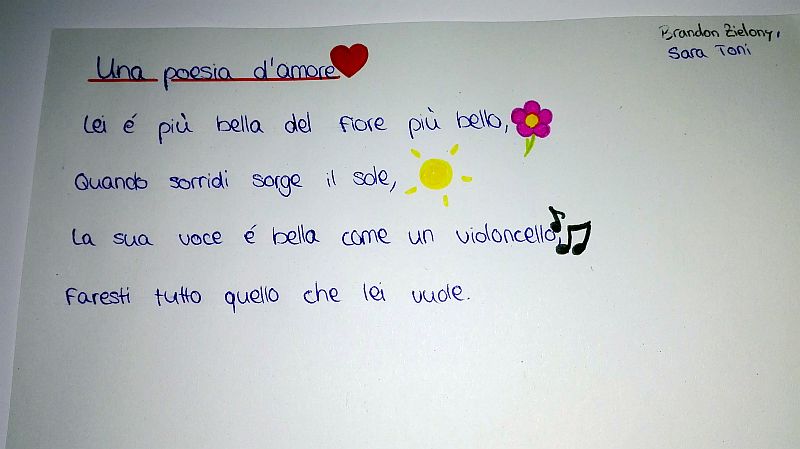 Brandon Zielony,
Sara Toni
Una poesia d'amore
Lei é più bella del fiore più bello,
Quando sorridi sorge il sole,
La sua voce é bella come un violoncello,
Faresti tutto quello che lei vuole.